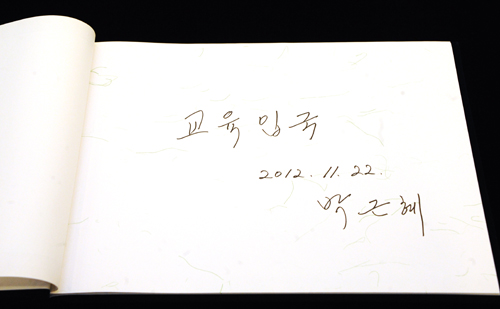 교육입국
2012. 11. 22.
박근혜